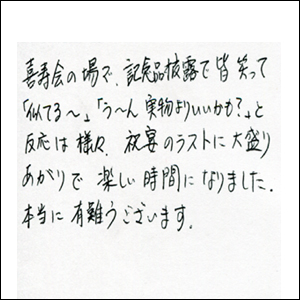 喜寿会の場で、記念品披露で皆笑って
「似てる〜」「う〜ん実物よりいいかも?」と
反応は様々、祝宴のラストに大盛り
あがりで楽しい時間になりました.
本当に有難うございます.